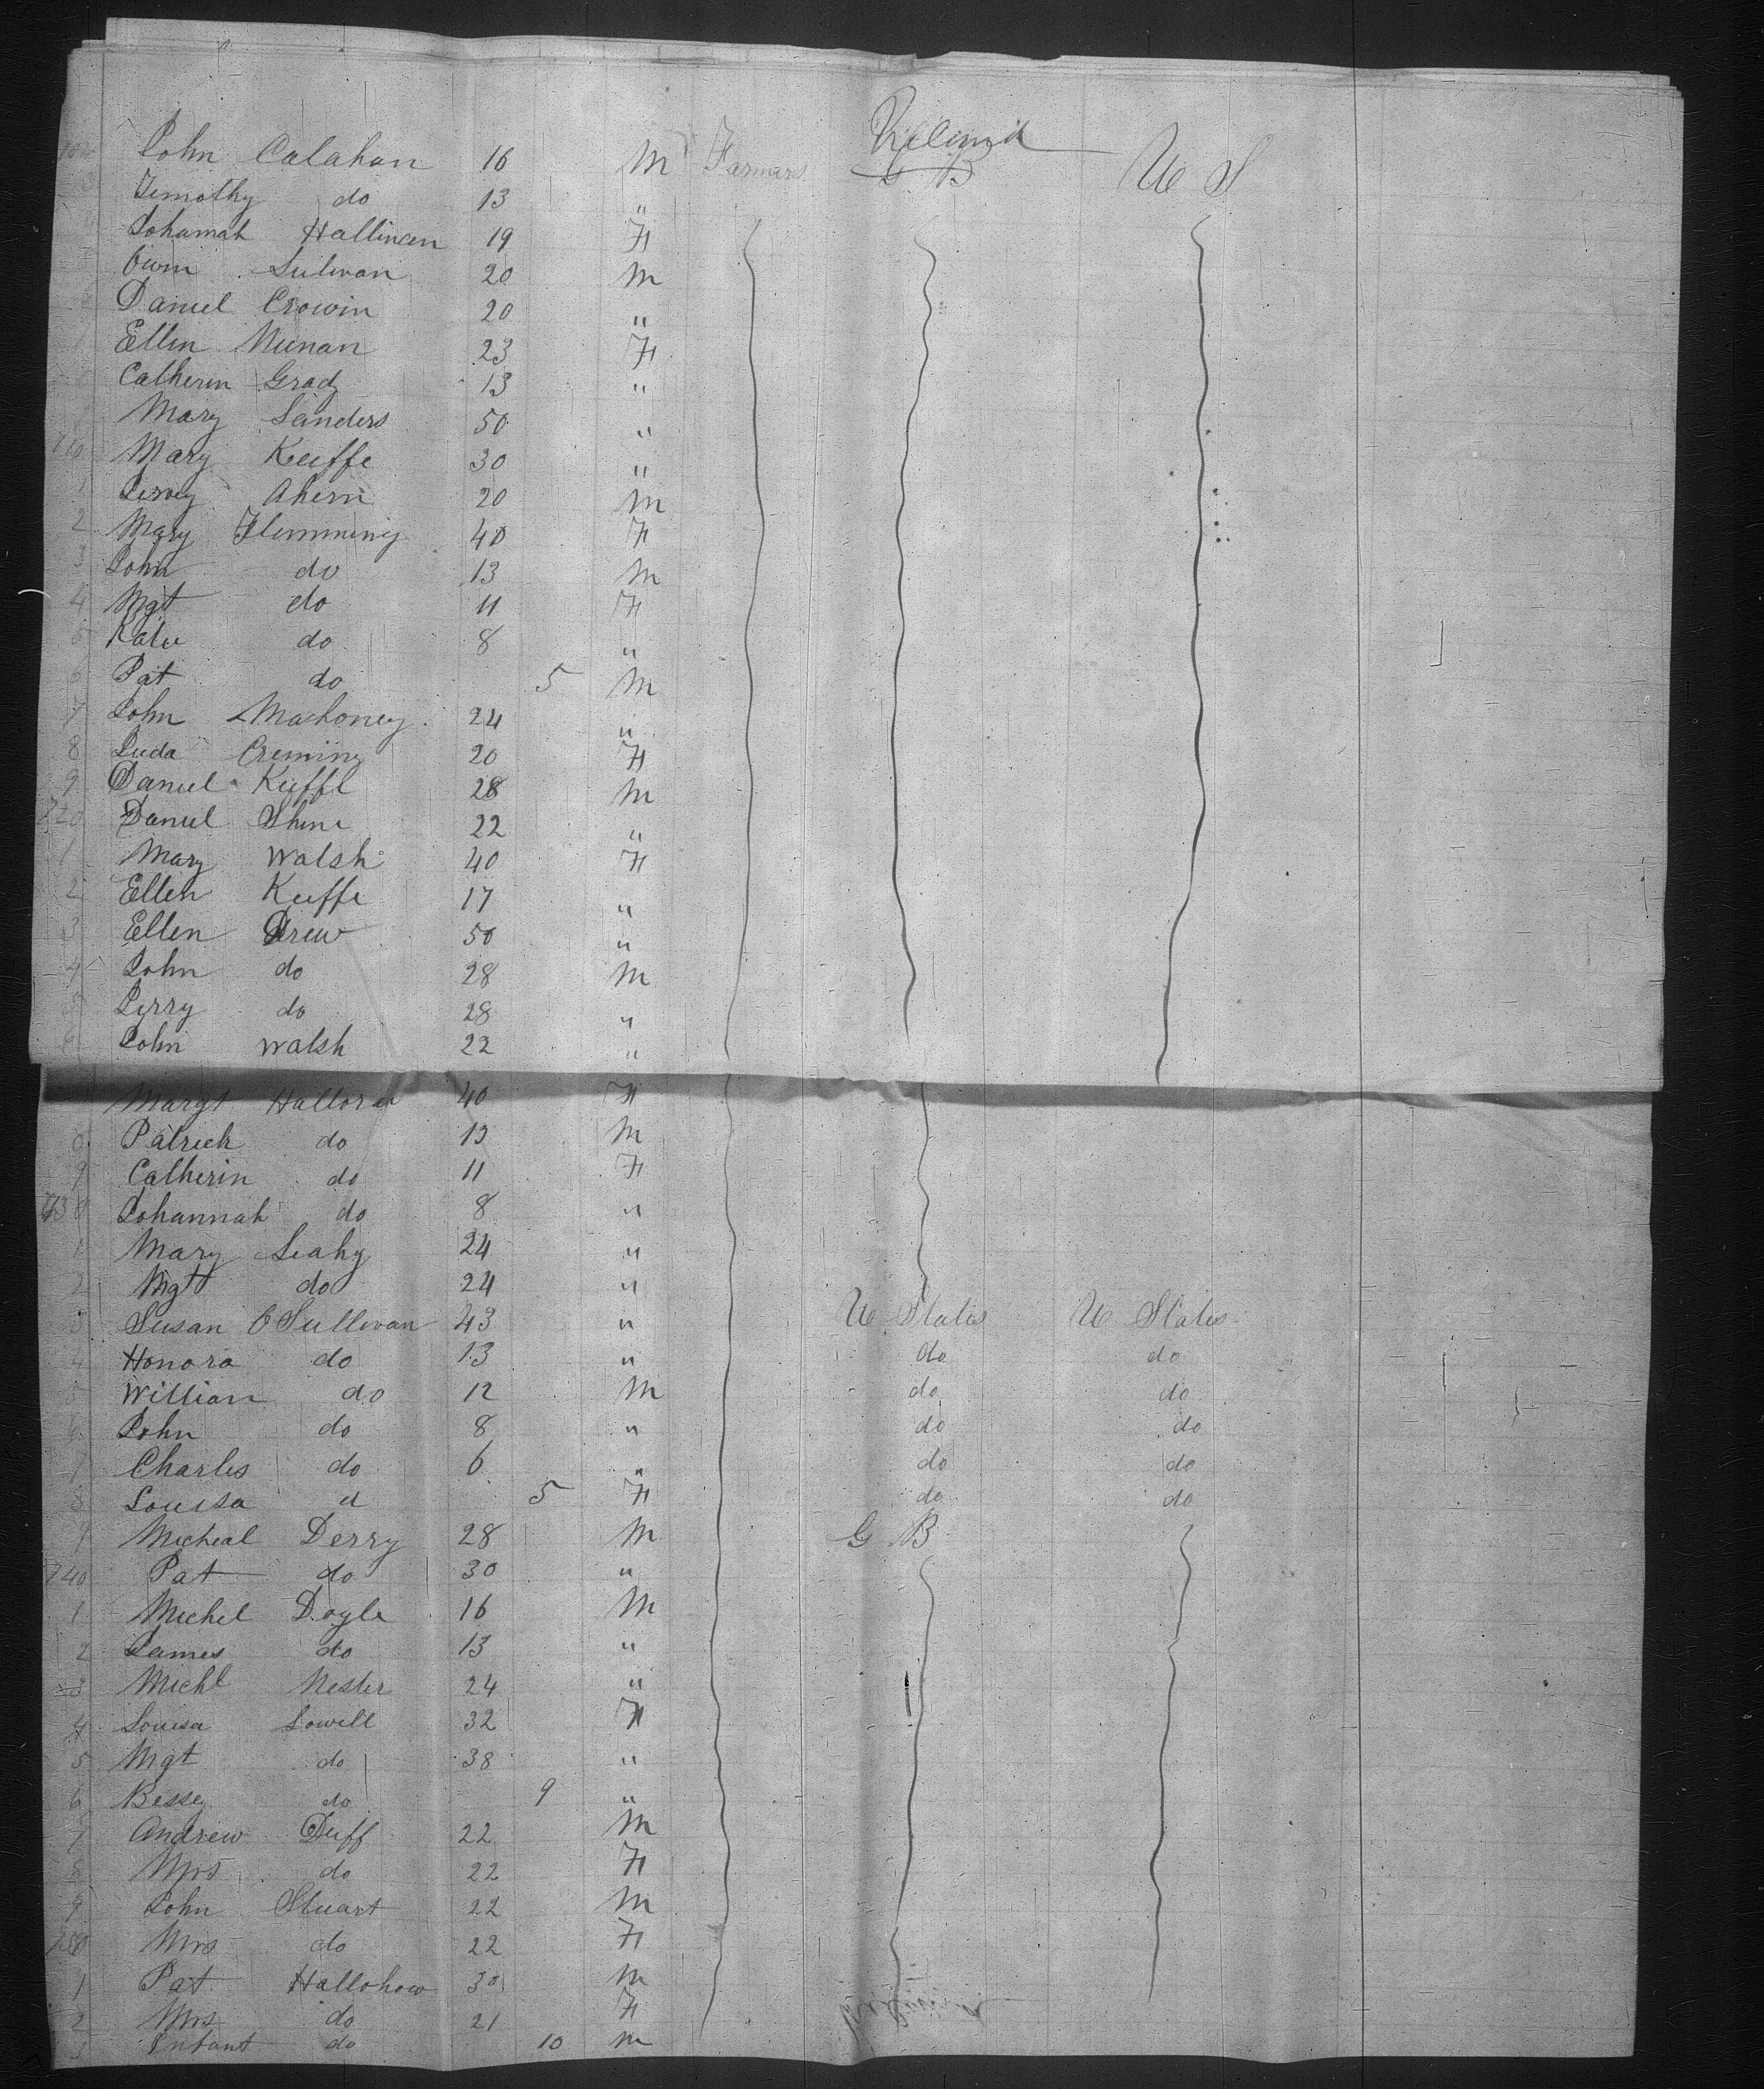 702 John Calahan 16 M Farmers G B U S
3 Timothy do 13 "
4 Johannah Hallinan 19 F
5 Owin Sulivan 20 M
6 Daniel Crowin 20 "
7 Ellen Nunan 23 F
8 Catherin Grady 13 "
9 Mary Sanders 50 "
710 Mary Keeffe 30 "
1 Ahern 20 M
2 Mary Flemming 40 F
3 John do 13 M
4 Mgt do 11 F
5 Katie do 8 "
6 Pat do 5 M
7 John Mahoney 24 "
8 Creming 20 F
9 Daniel Kieffe 28 M
720 Daniel Shine 22 "
1 Mary Walsh 40 F
2 Ellen Keeffe 17 "
3 Ellen Drew 50 "
4 John do 28 M
5 Jerry do 28 "
6 John Walsh 22 "
Margt Halloran 40 F
8 Patrick do 13 M
9 Catherin do 11 F
730 Johannah do 8 "
1 Mary Leahy 24 "
2 Mgt do 24 "
3 Susan O Sullivan 43 " U States U States
4 Honora do 13 " do do
5 Willian do 12 M do do
6 John do 8 " do do
7 Charles do 6 " do do
8 Louisa d 5 F do do
9 Micheal Derry 28 M G B
740 Pat do 30 "
1 Michel Doyle 16 M
2 James do 13 "
3 Michl Nester 24 "
4 Louisa Lowell 32 F
5 Mgt do 38 "
6 Bessy do 9 "
7 Andrew Duff 22 M
8 Mrs do 22 F
9 John Stuart 22 M
750 Mrs do 22 F
1 Pat Hallohow 30 M
2 Mrs do 21 F
3 Infant do 10 M